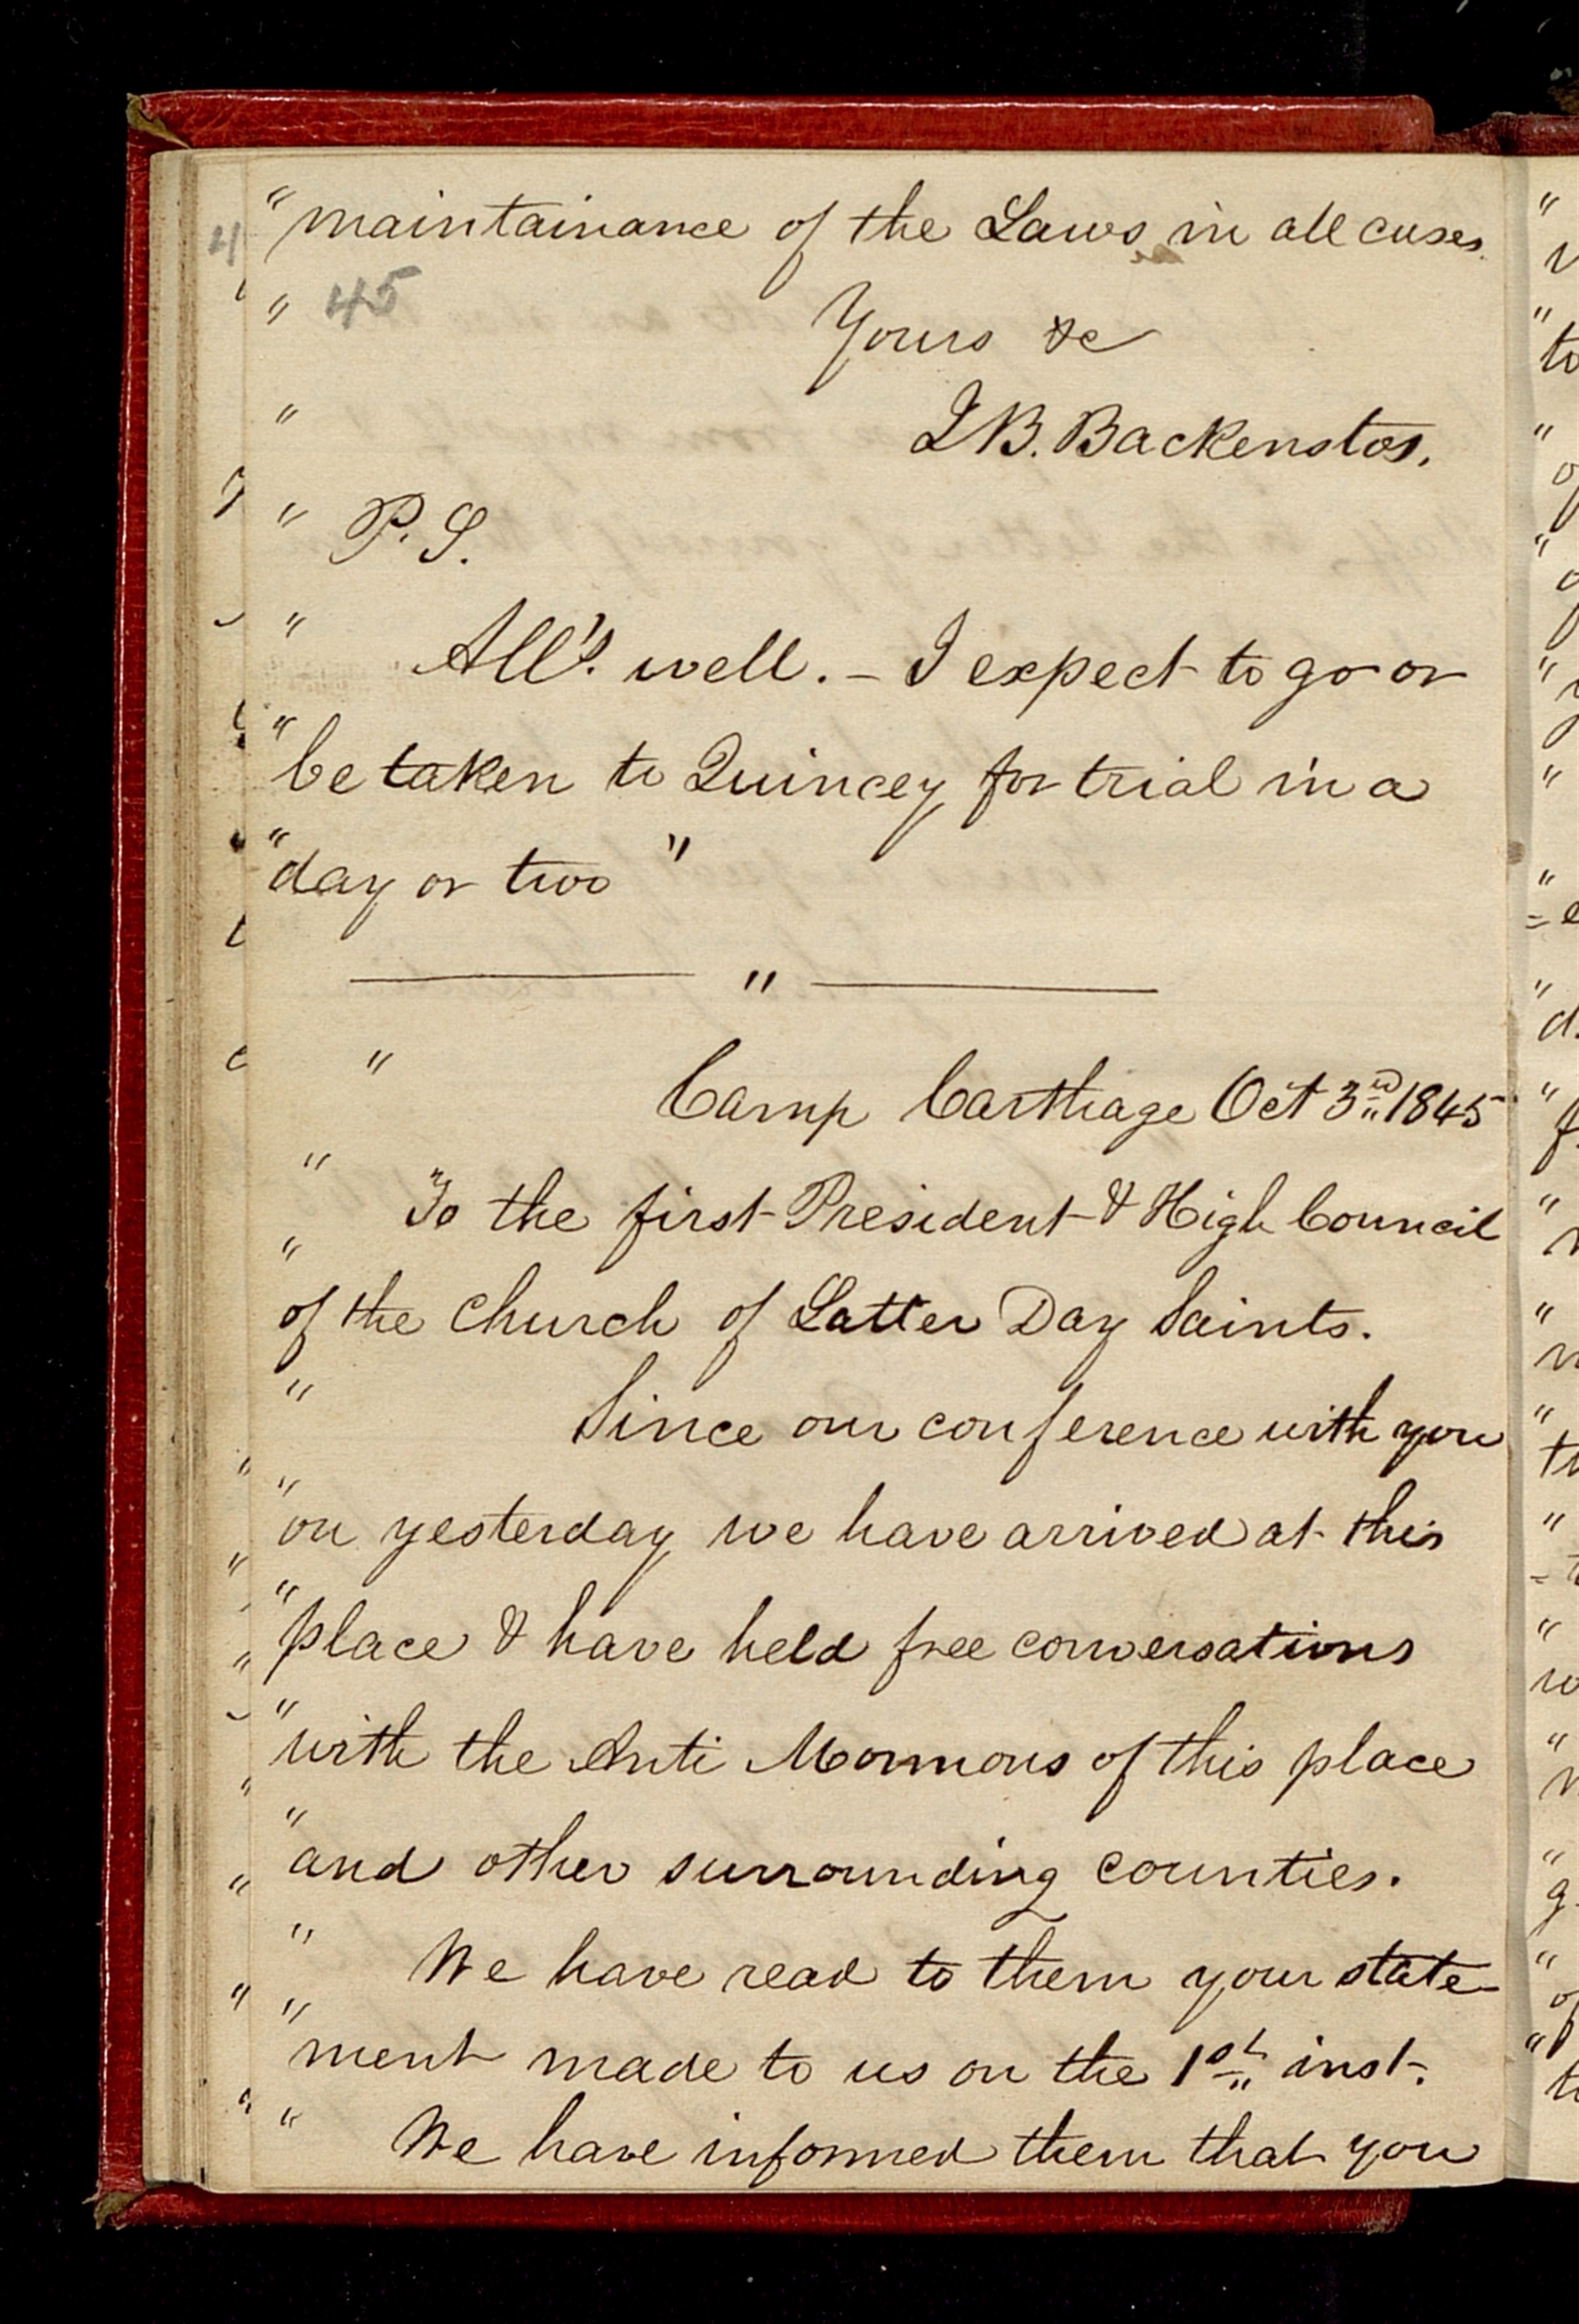 " maintainance of the Laws in all cases.
" 45 Yours &c
" J B. Backenstos.
" P. S.
" All's well. – I expect to go or
" be taken to Quincey for trial in a
" day or two "
" 
" Camp Carthage Oct 3rd 1845
" "To the first President & High Council
" of the Church of Latter Day Saints.
" Since our conference with you
" on yesterday we have arrived at this
" place & have held free conversations
" with the Anti Mormons of this place
" and other surrounding counties.
" We have read to them your state-
" ment made to us on the 1st inst.
" We have informed them that you